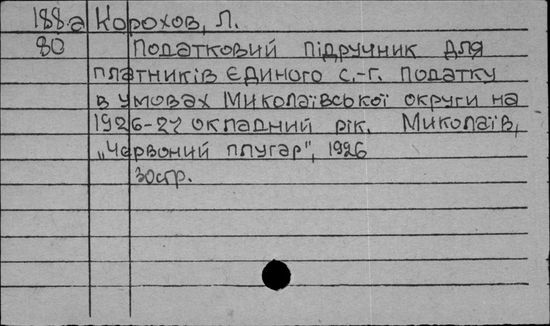 188.a Корохов, Л.
80 Податковий підручник для
платників єдиного с.-г. податку
в умовах Миколаївської округи на
1926-27 окладний рік. Миколаїв,
„Червоний плугар", 1926
30стр.